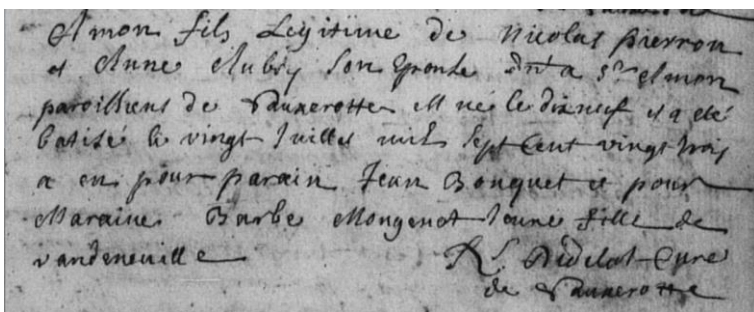 Amon fils Legitime de Nicolas pierron
et Anne Aubry son Epouse dnt a St elmon
paroissiens de Vauxerotte est né le dixneuf et a eté
batisé le vingt Juillet mil sept Cent vingt trois
a eu pour parain Jean Bouquet et pour
Maraine Barbe Mongenot Jeune fille de
vandeneuville
Didelot Cure
de Vauxerotte